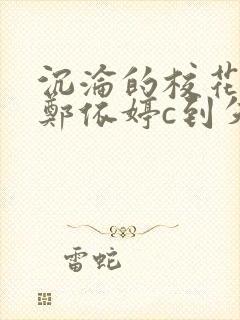 沉淪的校花
鄭依婷c到
雷蛇